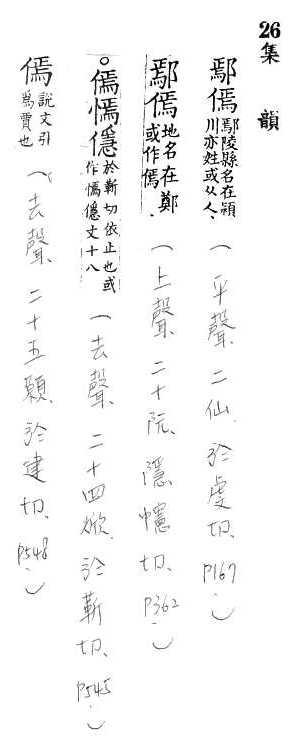 26集韻
鄢傿鄢陵縣名在潁川亦姓或从人、(平聲、二仙、於虔切、P167、)
鄢傿地名在鄭或作傿、(上聲、二十阮、隱幰切、P362、)
。傿㒚㒚於靳切依止也或作㒚㒚文十八(去聲、二十四焮、於靳切、P545、)
傿說文引為賈也(去聲、二十五願、於建切、P548、)